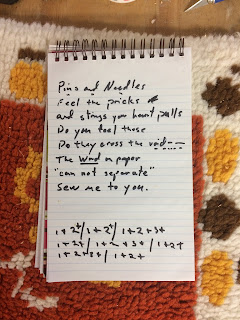 Pins and Needles
Feel the pricks
and strings you heart pulls
Do you feel those
Do they cross the void---
The Word on paper
"can not separate"
Sew me to you.
1+2+/1+2+/1+2+3+
1+2+/1+2+3+/1+2+
1+2+3+/1+2+